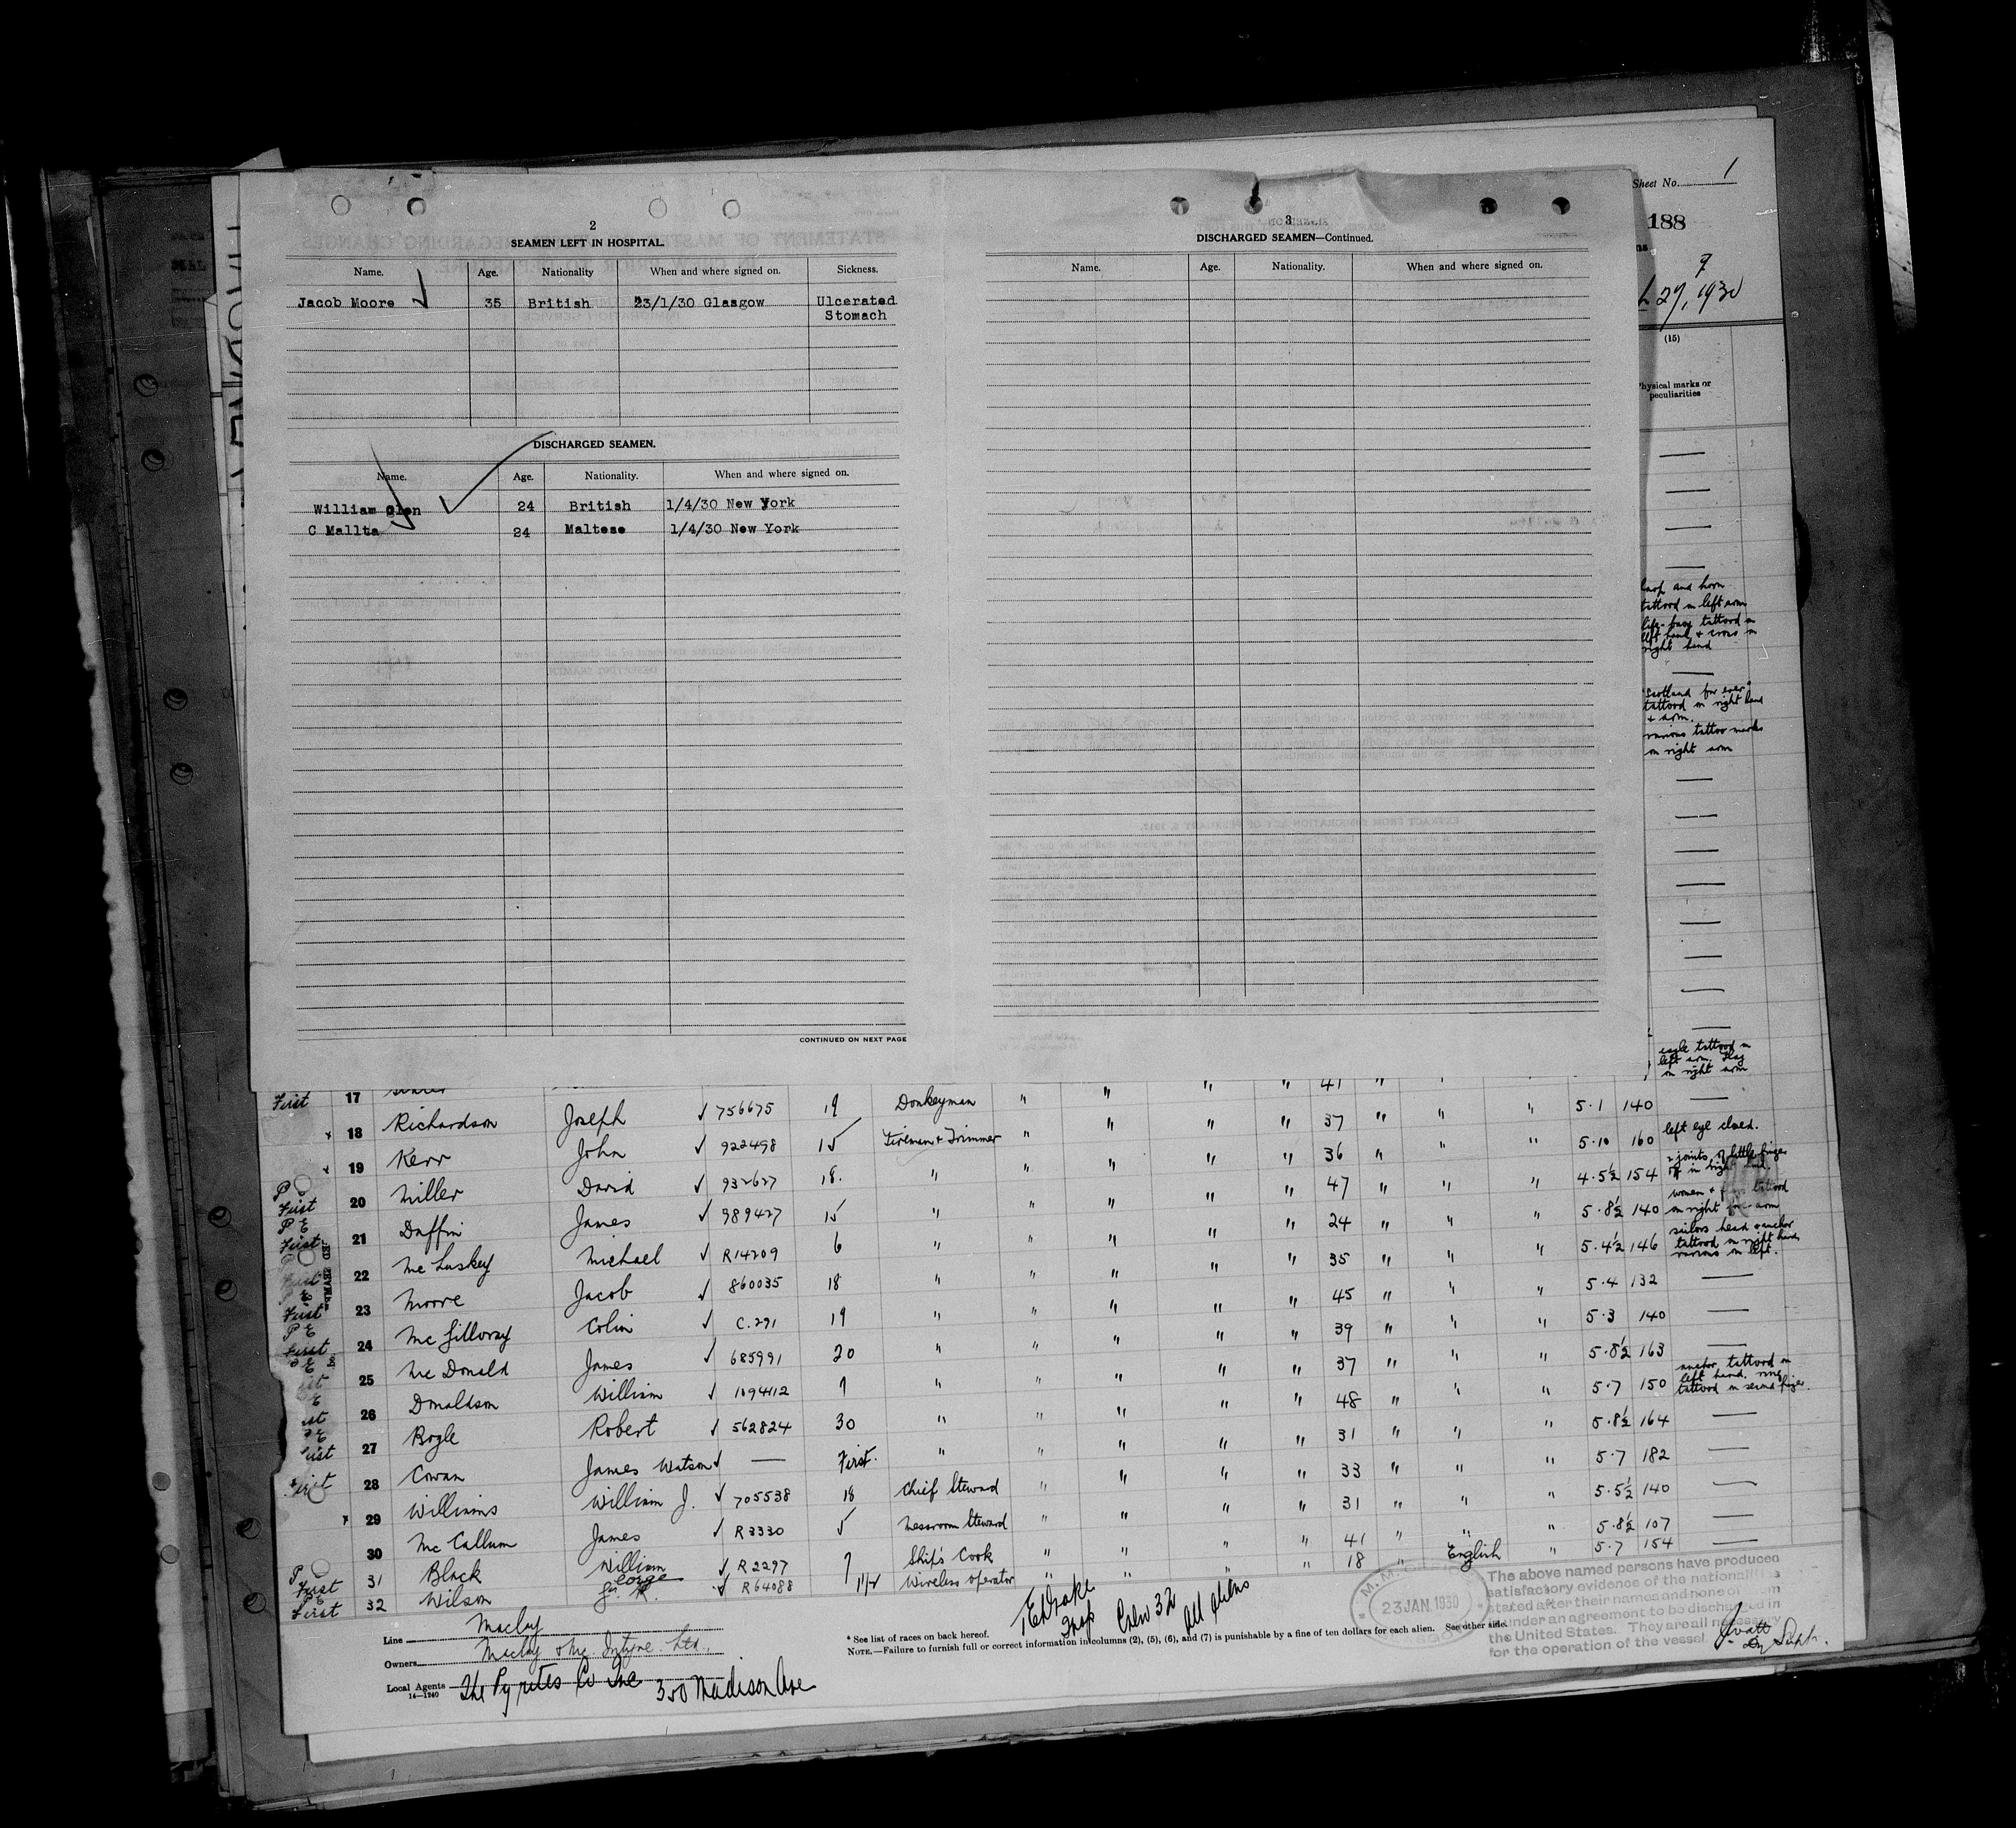 Sheet No. 1
188
27, 1930
(15)
Physical marks or
peculiarities
2
SEAMEN LEFT IN HOSPITAL.
Name. Age. Nationality When and where signed on. Sickness.
Jacob Moore 35 British 23/1/30 Glasgow Ulcerated
Stomach
DISCHARGED SEAMEN.
Name. Age. Nationality. When and where signed on.
William Glen 24 British 1/4/30 New York
C Mallta 24 Maltese 1/4/30 New York
CONTINUED ON NEXT PAGE
3
DISCHARGED SEAMEN—Continued.
Name. Age. Nationality. When and where signed on.
and horn
tattood on left arm
tattood on
left hand + cross on
right hand
"Scotland for ever"
tattood on right hand
+ arm.
various tattoo marks
on right arm
eagle tattood on
left arm. Flag
on right arm
First 17 41
18 Richardson Joseph 756675 19 Donkeyman " " " " 37 " " " 5·1 140 —
19 Kerr John 922498 15 Fireman + Trimmer " " " " 36 " " " 5·10 160 left eye closed.
20 Miller David 932627 18. " " " " " 47 " " " 4·5½ 154 2 joints of little finger
off in right
21 Duffin James 989427 15 " " " " " 24 " " " 5·8½ 140 women + tattood
on right fore-arm
22 Mc Luskey Michael R14209 6 " " " " " 35 " " " 5·4½ 146 sailors head + anchor
tattood on right hand
various on left.
23 Moore Jacob 860035 18 " " " " " 45 " " " 5·4 132 —
24 Mc Gilloray Colin C.291 19 " " " " " 39 " " " 5·3 140 —
25 Mc Donald James 685991 20 " " " " " 37 " " " 5·8½ 163 —
26 Donaldson William 1094412 7 " " " " " 48 " " " 5·7 150 anchor tattood on
left hand. ring
tattood on second finger.
27 Bogle Robert 562824 30 " " " " " 31 " " " 5·8½ 164 —
28 Cowan James Watson — First. " " " " " 33 " " " 5·7 182 —
29 Williams William J. 705538 18 Chief Steward " " " " 31 " " " 5·5½ 140 —
30 Mc Callum James R3330 5 Messroom Steward " " " " 41 " " " 5·8½ 107 —
P First 31 Black William R2297 7 Ship's Cook " " " " 18 " English " 5·7 154 —
PE First 32 Wilson George R64088 1½ Wireless operator " " "
Line Maclay
Owners Maclay & Mc Intyre Ltd.
Local Agents The Pyrites Co Inc 350 Madison Ave
14—1240
Crew 32 All aliens
* See list of races on back hereof.
NOTE.—Failure to furnish full or correct information in columns (2), (5), (6), and (7) is punishable by a fine of ten dollars for each alien. See other side.
23 JAN. 1930
The above named persons have produced
satisfactory evidence of the nationalities
stated after their names and none of them
is under an agreement to be discharged in
the United States. They are all necessary
for the operation of the vessel.